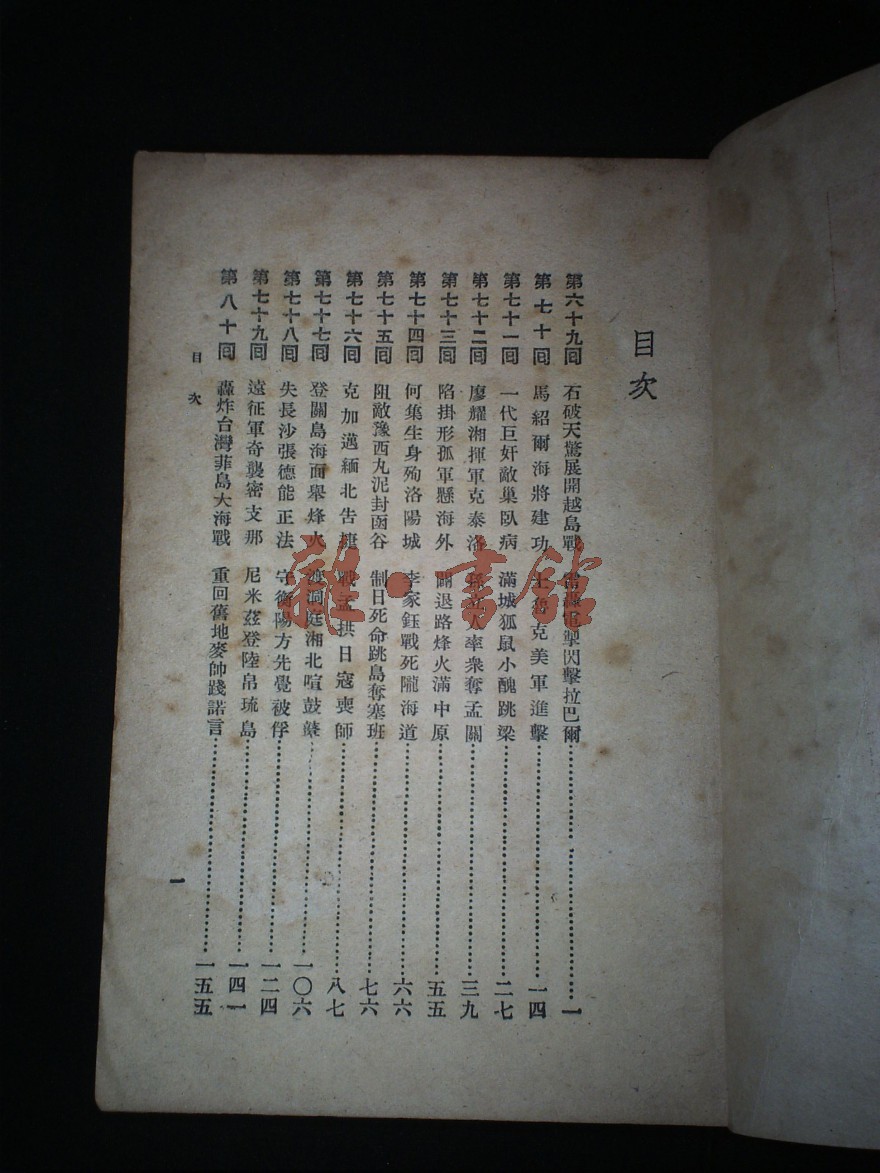 目次
第六十九回 石破天驚展開越島戰 雷轟電掣閃擊拉巴爾 一
第七十回 馬紹爾海將建功 土魯克美軍進擊 一四
第七十一回 一代巨奸敵巢臥病 滿城狐鼠小醜跳梁 二七
第七十二回 廖耀湘揮軍克泰洛 孫立人率衆奪孟關 三九
第七十三回 陷掛形孤軍懸海外 闢退路烽火滿中原 五五
第七十四回 何集生身殉洛陽城 李家鈺戰死隴海道 六六
第七十五回 阻敵豫西丸泥封函谷 制日死命跳島奪塞班 七六
第七十六回 克加邁緬北告捷 戰孟拱日寇喪師 八七
第七十七回 登關島海面舉烽火 渡洞庭湘北喧鼓鼙 一〇六
第七十八回 失長沙張德能正法 守衡陽方先覺被俘 一二四
第七十九回 遠征軍奇襲密支那 尼米茲登陸帛琉島 一四一
第八十回 轟炸台灣菲島大海戰 重回舊地麥帥踐諾言 一五五
目次
一
龍·書館